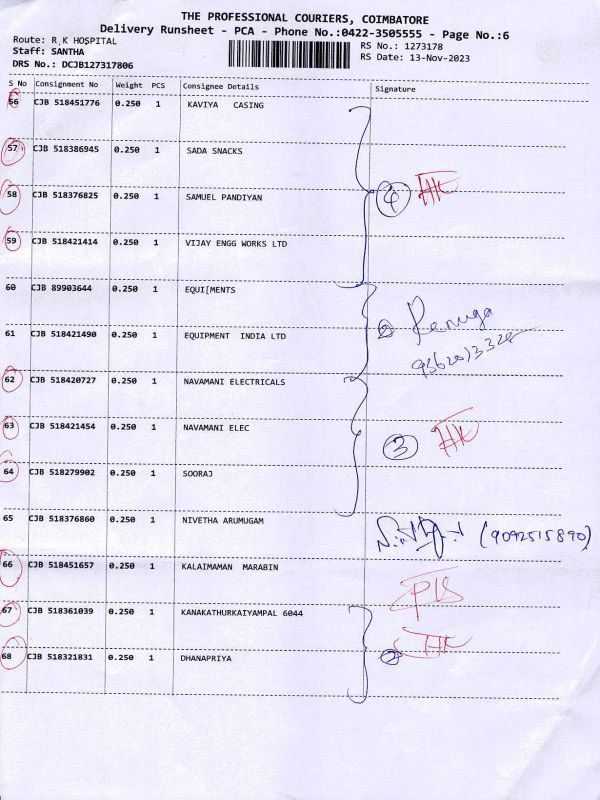 THE PROFESSIONAL COURIERS, COIMBATORE
Delivery Runsheet - PCA - Phone No.:0422-3505555 - Page No.:6
Route: R.K HOSPITAL
Staff: SANTHA
DRS No.: DCJB127317806
RS No.: 1273178
RS Date: 13-Nov-2023
S No Consignment No Weight PCS Consignee Details Signature
56 CJB 518451776 0.250 1 KAVIYA CASING
57 CJB 518386945 0.250 1 SADA SNACKS
58 CJB 518376825 0.250 1 SAMUEL PANDIYAN 4
59 CJB 518421414 0.250 1 VIJAY ENGG WORKS LTD
60 CJB 89903644 0.250 1 EQUI[MENTS
61 CJB 518421490 0.250 1 EQUIPMENT INDIA LTD 2 Renuga
62 CJB 518420727 0.250 1 NAVAMANI ELECTRICALS
63 CJB 518421454 0.250 1 NAVAMANI ELEC 3
64 CJB 518279902 0.250 1 SOORAJ
65 CJB 518376860 0.250 1 NIVETHA ARUMUGAM (9092515890)
66 CJB 518451657 0.250 1 KALAIMAMAN MARABIN
67 CJB 518361039 0.250 1 KANAKATHURKAIYAMPAL 6044
68 CJB 518321831 0.250 1 DHANAPRIYA 2